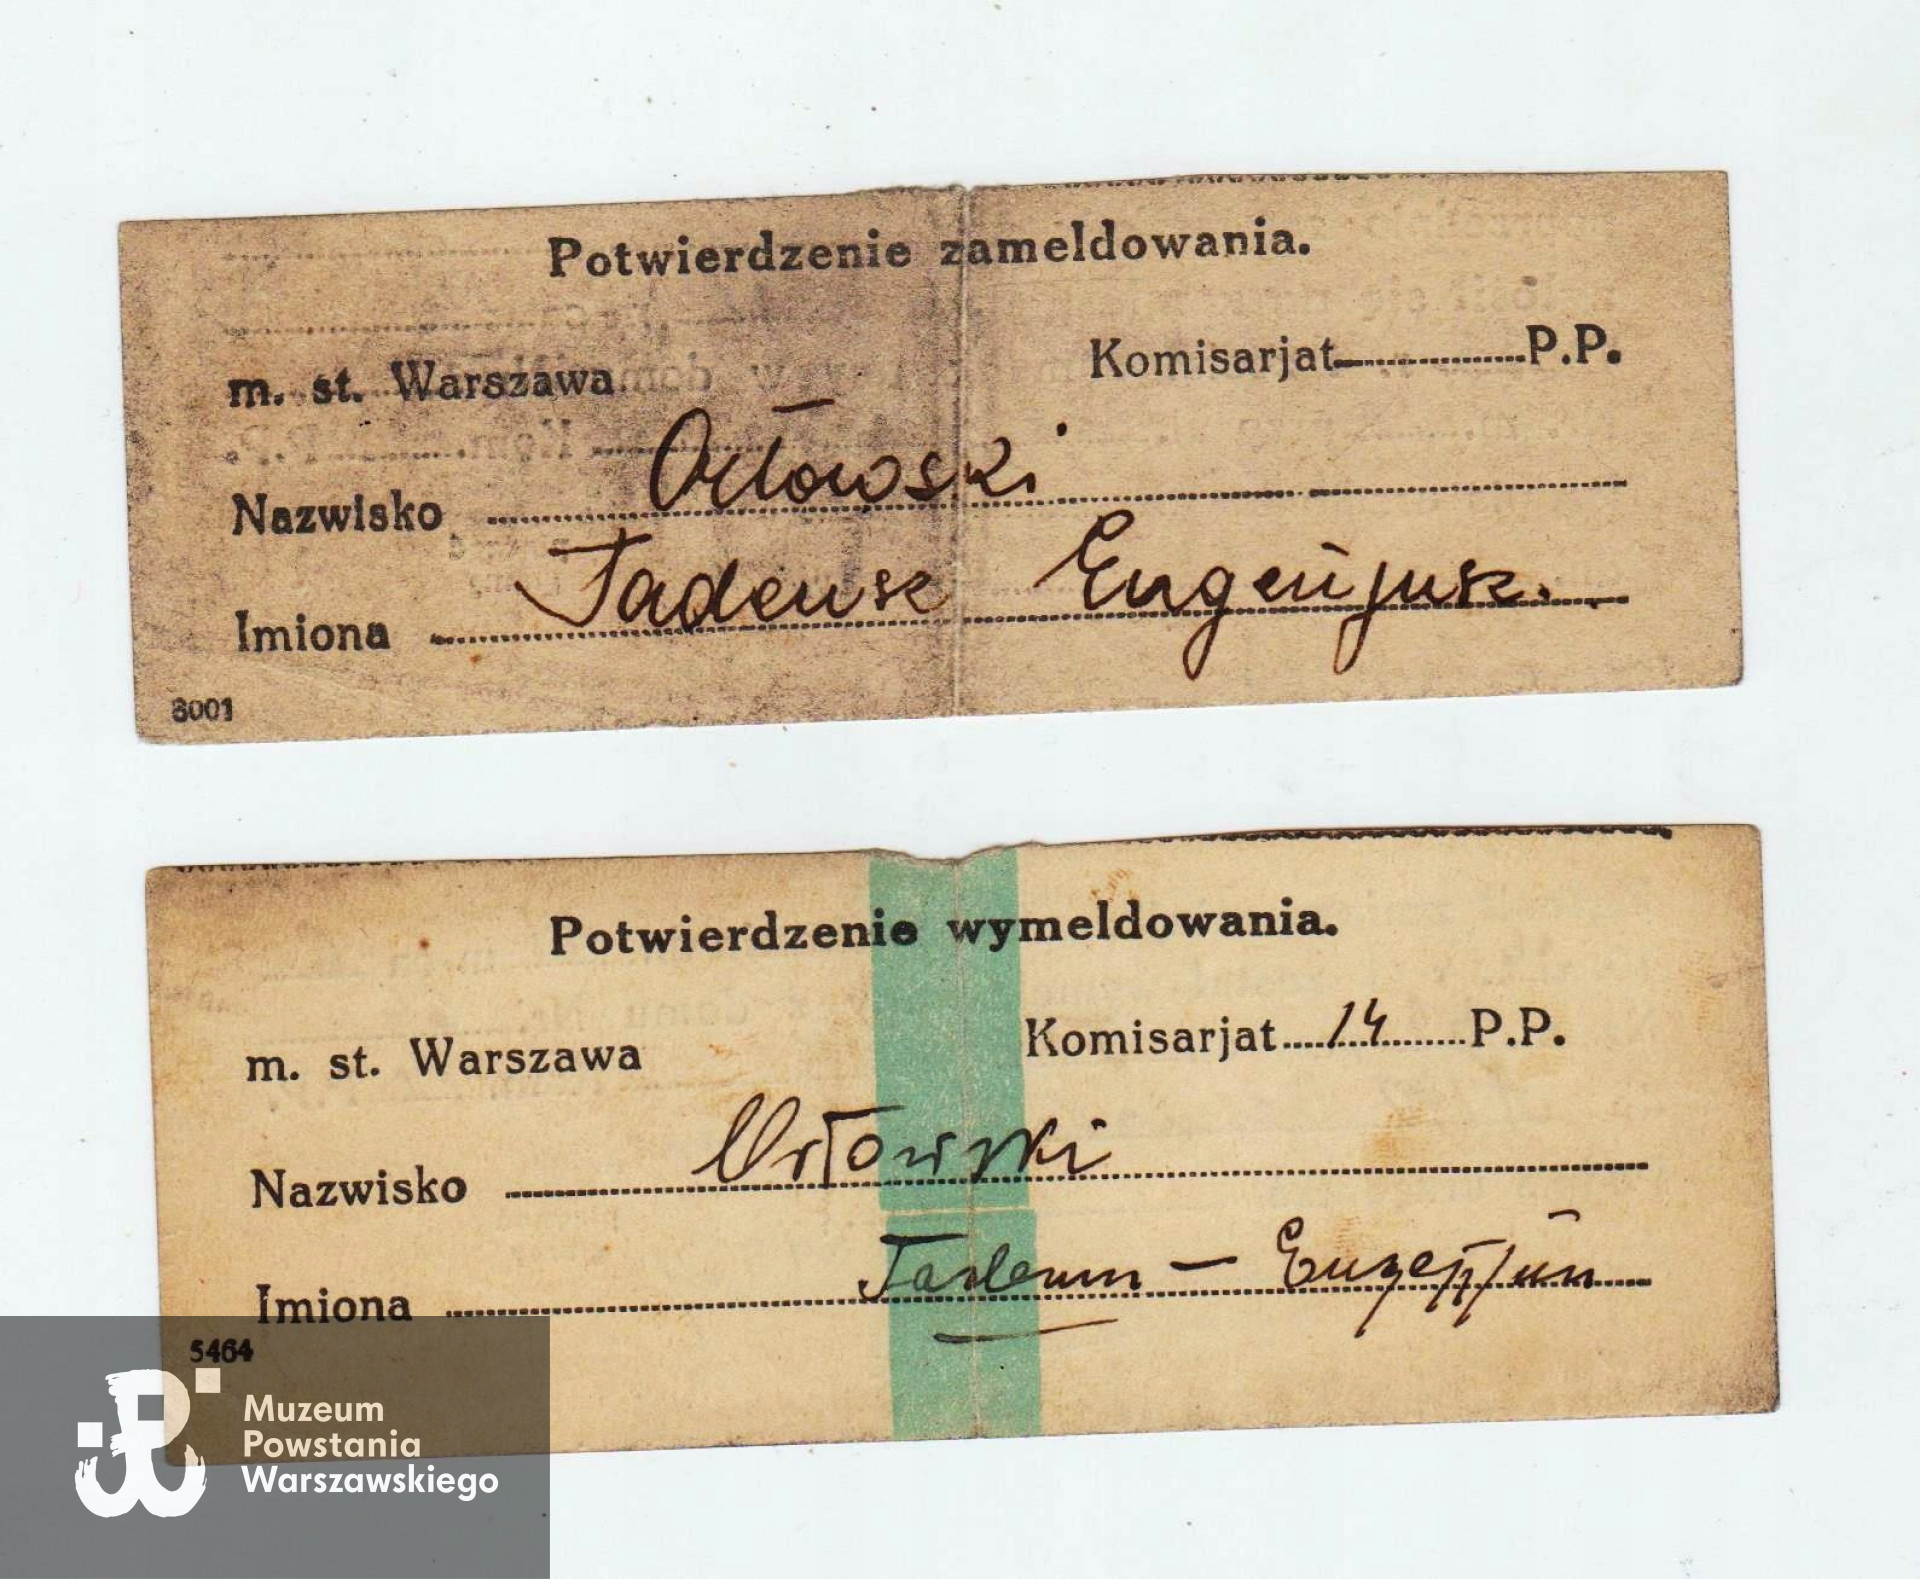 Potwierdzenie zameldowania.
m. st. Warszawa Komisarjat............P.P.
Nazwisko Orłowski
Imiona Tadeusz Eugenjusz.
8001
Potwierdzenie wymeldowania.
m. st. Warszawa Komisarjat 14 P.P.
Nazwisko Orłowski
Imiona Tadeusz – Eugenjusz
5464
Muzeum
Powstania
Warszawskiego